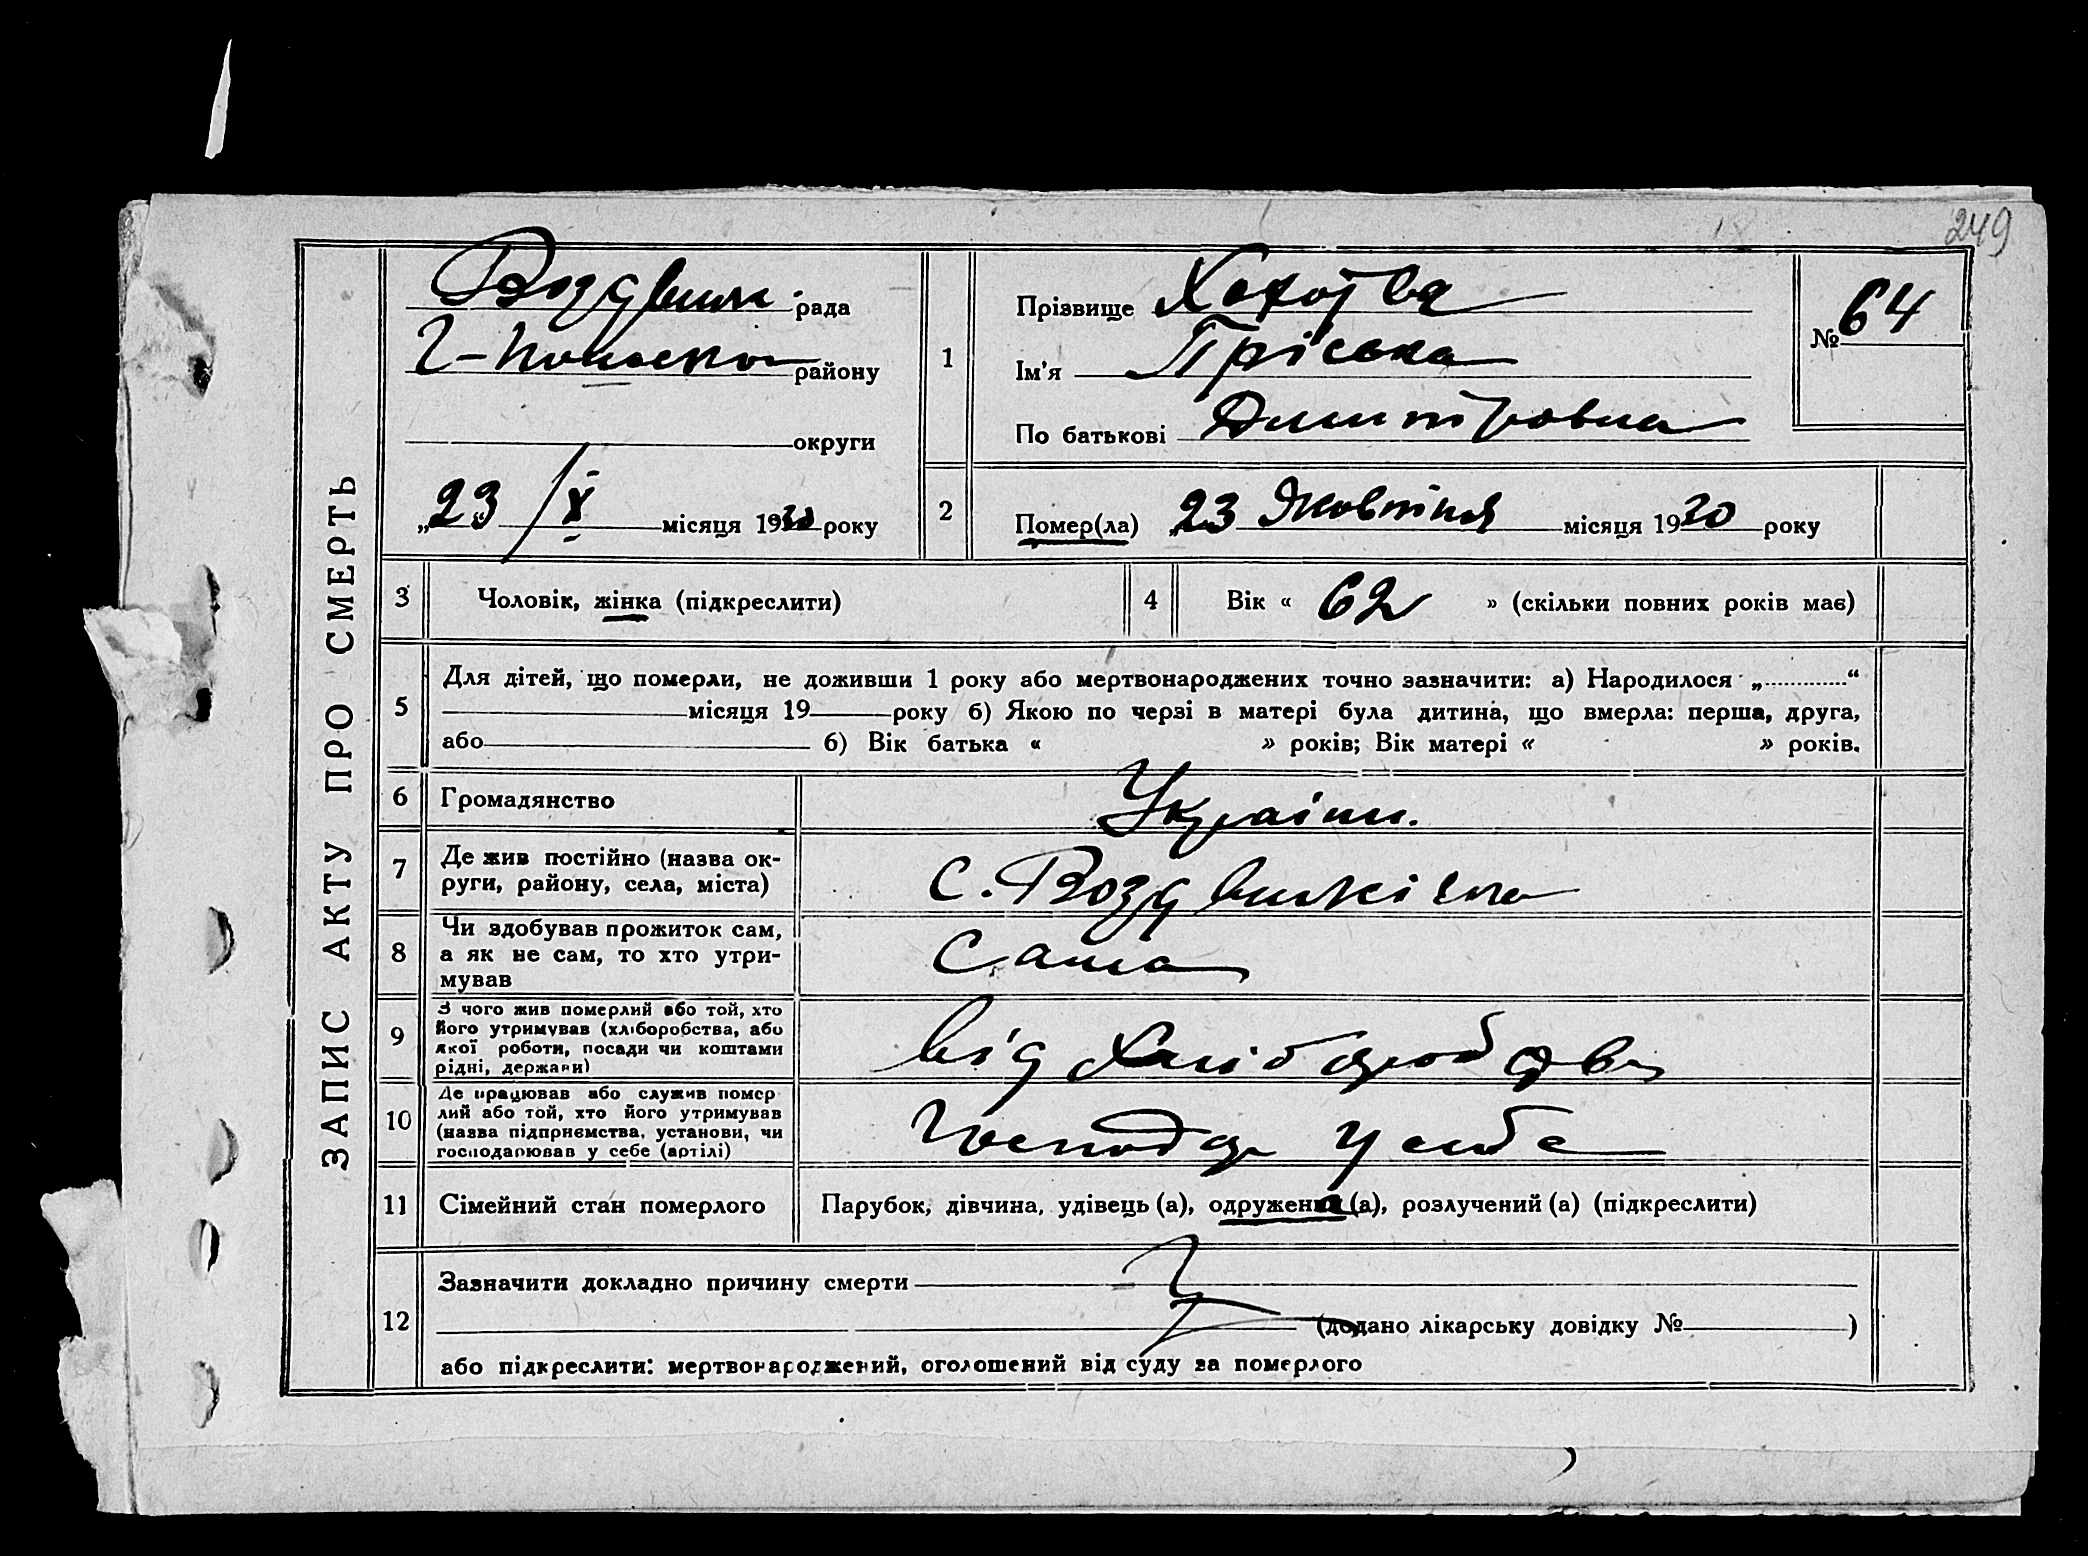 249
ЗАПИС АКТУ ПРО СМЕРТЬ
Воздвиж. рада
району
округи
„23“ / X місяця 1930 року
1
Прізвище
Ім'я Пріська
По батькові Дмитровна
№ 64
2
Помер(ла) 23 Жовтня місяця 1930 року
3 Чоловік, жінка (підкреслити)
4 Вік « 62 » (скільки повних років має)
5
Для дітей, що померли, не доживши 1 року або мертвонароджених точно зазначити: а) Народилося „.............“
місяця 19 року б) Якою по черзі в матері була дитина, що вмерла: перша, друга,
або б) Вік батька « » років; Вік матері « » років.
6 Громадянство Україн.
7 Де жив постійно (назва ок-
руги, району, села, міста)
с. Воздвиживка
8 Чи здобував прожиток сам,
а як не сам, то хто утри-
мував
Сама
9 З чого жив померлий або той, хто
його утримував (хліборобства, або
якої роботи, посади чи коштами
рідні, держави)
від Хліборобства
10 Де працював або служив помер
лий або той, хто його утримував
(назва підприємства, установи, чи
господарював у себе (артілі)
Господар у себе
11 Сімейний стан померлого Парубок, дівчина, удівець (а), одружений (а), розлучений (а) (підкреслити)
12
Зазначити докладно причину смерти
(додано лікарську довідку № )
або підкреслити: мертвонароджений, оголошений від суду за померлого